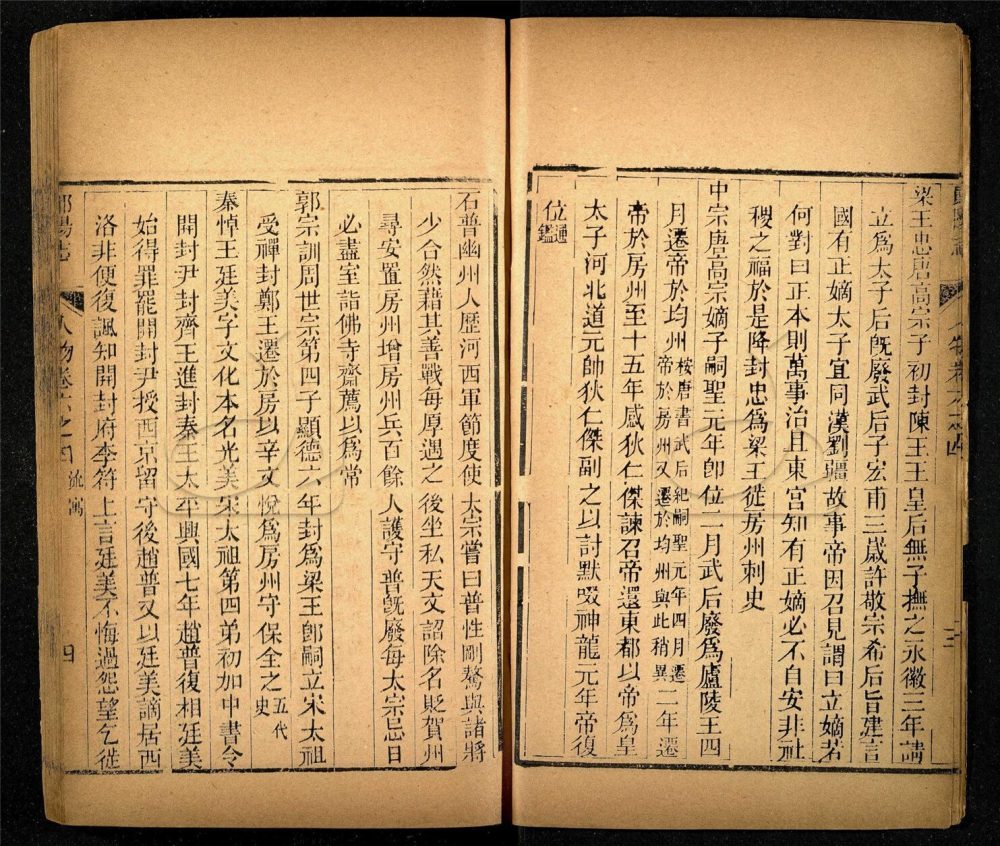 梁王忠唐高宗子初封陳王王皇后無子撫之永徽三年請
立爲太子后旣廢武后子宏甫三歲許敬宗希后旨建言
國有正嫡太子宜同漢劉疆故事帝因召見謂曰立嫡若
何對曰正本則萬事治且東宮知有正嫡必不自安非社
稷之福於是降封忠爲梁王徙房州刺史
中宗唐高宗嫡子嗣聖元年卽位二月武后廢爲廬陵王四
月遷帝於均州按唐書武后紀嗣聖元年四月遷帝於房州又遷於均州與此稍異二年遷
帝於房州至十五年感狄仁傑諫召帝還東都以帝爲皇
太子河北道元帥狄仁傑副之以討默啜神龍元年帝復
位通鑑
石普幽州人歷河西軍節度使太宗嘗曰普性剛驁與諸將
少合然藉其善戰每厚遇之後坐私天文詔除名貶賀州
尋安置房州增房州兵百餘人護守普旣廢每太宗忌日
必盡室詣佛寺齋薦以爲常
郭宗訓周世宗第四子顯德六年封爲梁王卽嗣立宋太祖
受禪封鄭王遷於房以辛文悅爲房州守保全之五代史
秦悼王廷美字文化本名光美宋太祖第四弟初加中書令
開封尹封齊王進封秦王太平興國七年趙普復相廷美
始得罪罷開封尹授西京留守後趙普又以廷美謫居西
洛非便復諷知開封府李符上言廷美不悔過怨望乞徙
人物卷六之四
流寓
四